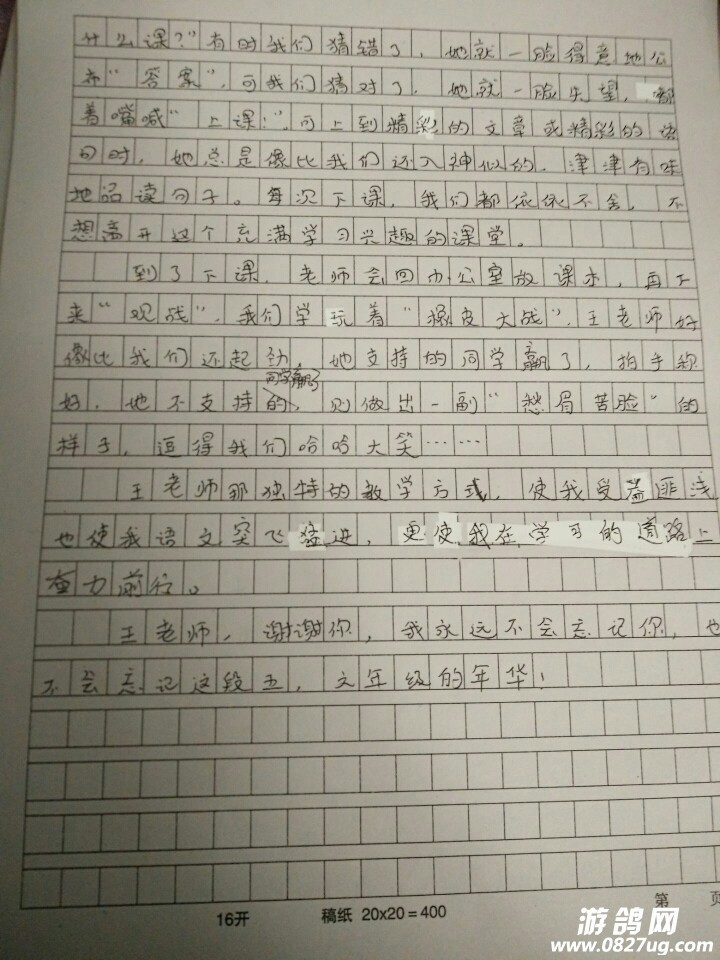 什么课?"有时我们猜错了，她就一脸得意地公
布"答案",可我们猜对了，她就一脸失望，嘟
着嘴喊"上课!",可上到精彩的文章或精彩的语
句时，她总是像比我们还入神似的，津津有味
地品读句子。每次下课，我们都依依不舍，不
想离开这个充满学习兴趣的课堂。
到了下课，老师会回办公室放课本，再下
来"观战",我们学玩着"橡皮大战",王老师好
像比我们还起劲，她支持的同学赢了，拍手称
好，她不支持的同学赢了，则做出一副"愁眉苦脸"的
样子，逗得我们哈哈大笑……
王老师那独特的教学方式，使我受益匪浅
也使我语文突飞猛进，更使我在学习的道路上
奋力前行。
王老师，谢谢你，我永远不会忘记你，也
不会忘记这段五，六年级的年华!
16开 稿纸 20x20=400 第 页
游鸽网
www.0827ug.com